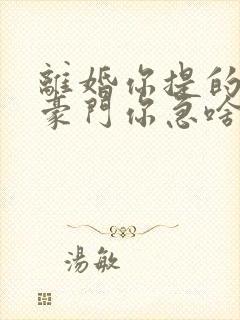 離婚你提的
豪門你急啥
湯敏